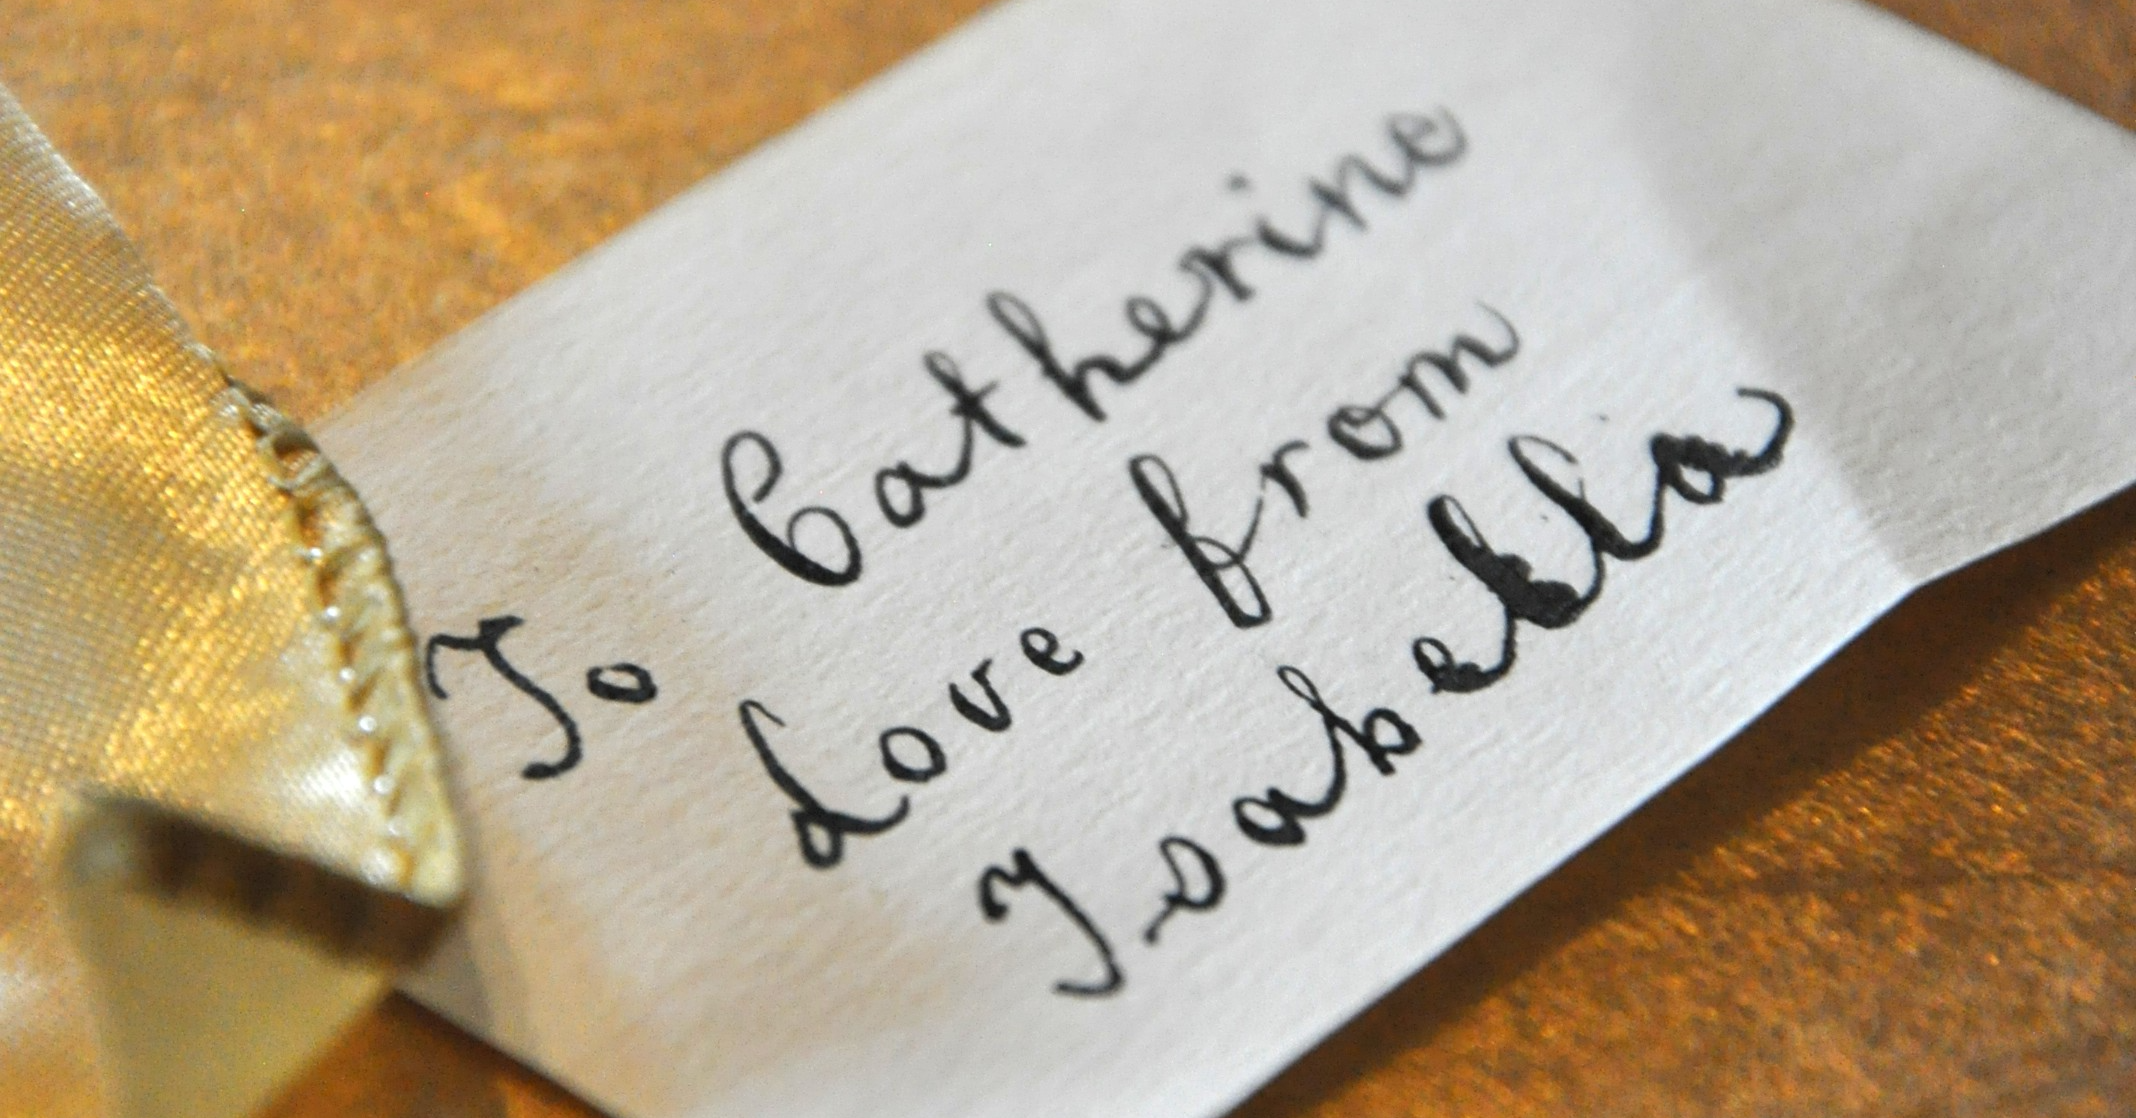 To Catherine
Love from
Isabella